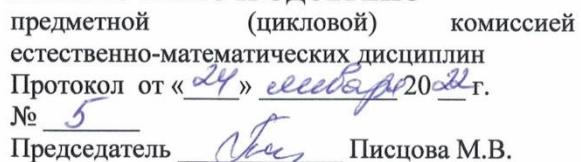 предметной (цикловой) комиссией
естественно-математических дисциплин
Протокол от «24» января 2022 г.
№ 5
Председатель Писцова М.В.